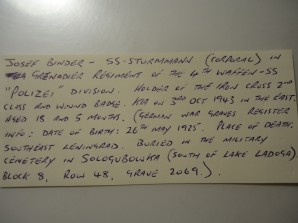 JOSEF BINDER - SS-STURMMANN (CORPORAL) IN
GRENADIER REGIMENT OF THE 4TH WAFFEN-SS
"POLIZEI" DIVISION. HOLDER OF THE IRON CROSS 2ND
CLASS AND WOUND BADGE. KIA ON 3RD OCT 1943 IN THE EAST.
AGED 18 AND 5 MONTHS. (GERMAN WAR GRAVES REGISTER
INFO: DATE OF BIRTH: 26TH MAY 1925. PLACE OF DEATH:
SOUTHEAST LENINGRAD. BURIED IN THE MILITARY
CEMETERY IN SOLOGUBOWKA (SOUTH OF LAKE LADOGA)
BLOCK 8, ROW 48, GRAVE 2069.).